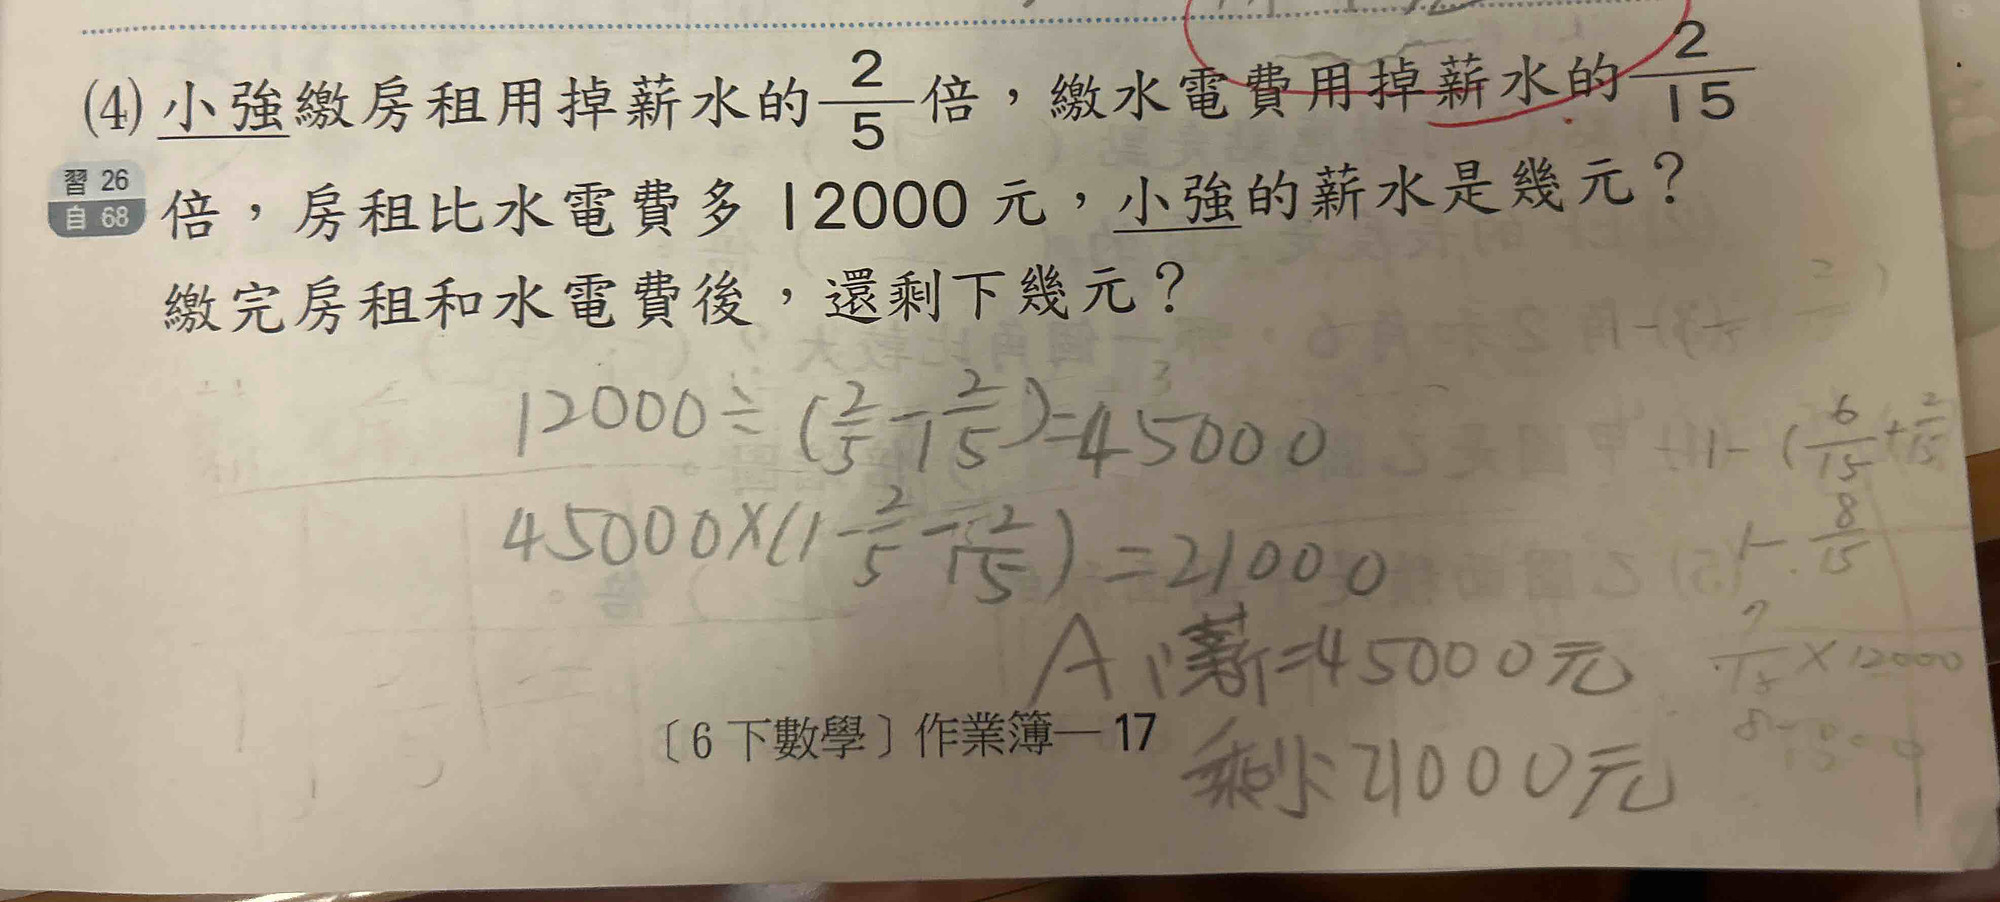 (4) 小強繳房租用掉薪水的 2/5 倍，繳水電費用掉薪水的 2/15
習 26
自 68
倍，房租比水電費多 12000 元，小強的薪水是幾元？
繳完房租和水電費後，還剩下幾元？
12000÷(2/5-2/15)=45000
45000×(1-2/5-2/15)=21000
A：薪=45000元
剩：21000元
1-(6/15+2/15
1-8/15
7/15×12000
〔6 下數學〕作業簿—17